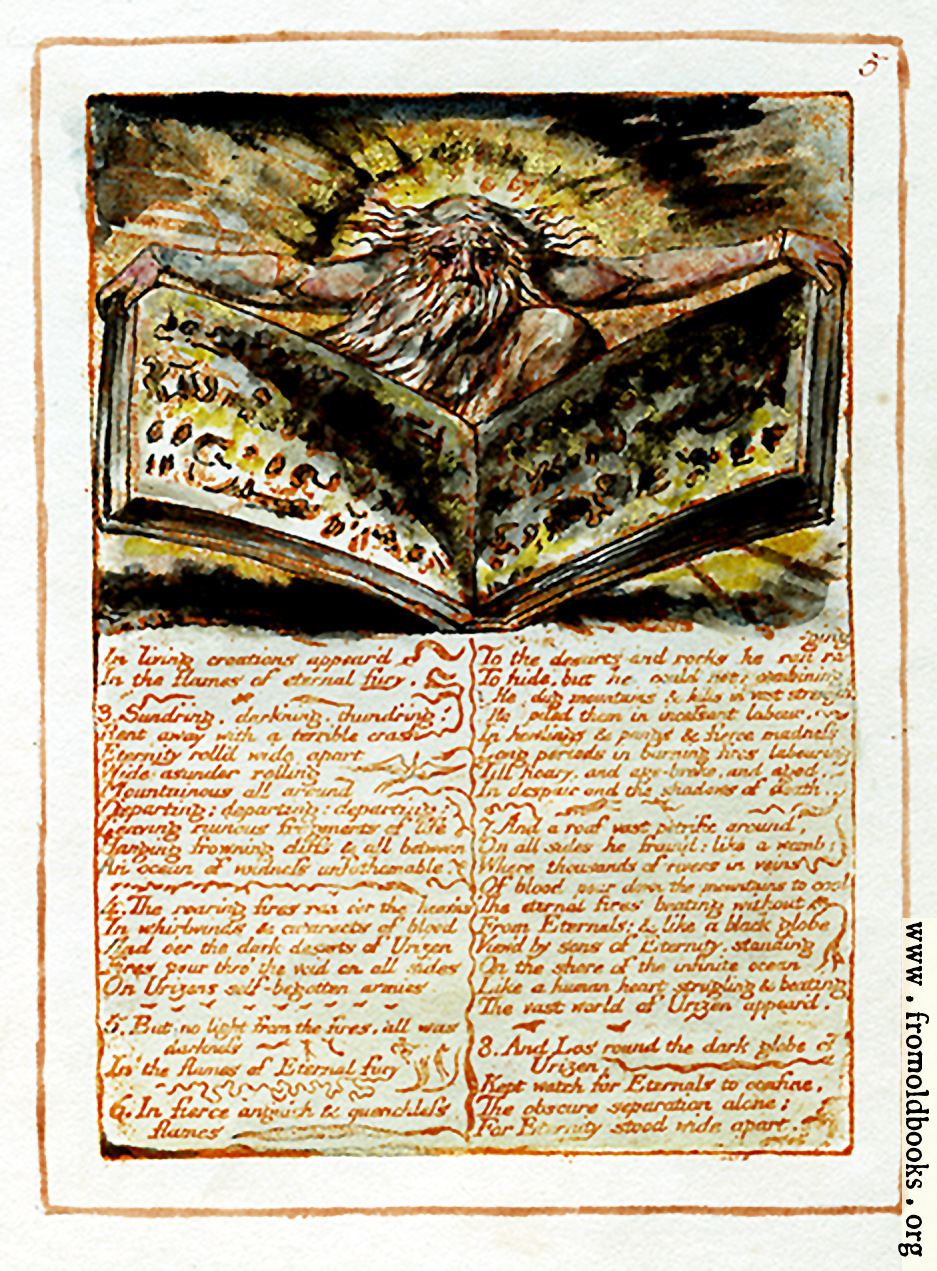 5
In living creations appear'd
In the flames of eternal fury.
3. Sundring, darkning, thundring,
Rent away with a terrible crash
Eternity roll'd wide apart
Wide asunder rolling
Mountainous all around
Departing; departing; departing:
Leaving ruinous fragments of life
Hanging frowning cliffs & all between
An ocean of voidness unfathomable.
4. The roaring fires ran o'er the heav'ns
In whirlwinds & cataracts of blood
And o'er the dark desarts of Urizen
Fires pour thro' the void on all sides
On Urizens self-begotten armies
5. But no light from the fires, all was
darkness
In the flames of Eternal fury
6. In fierce anguish & quenchless
flames
To the desarts and rocks he ran ra
ging
To hide, but he could not: combining
He dug mountains & hills in vast strength
He piled them in incessant labour,
In howlings & pangs & fierce madness
Long periods in burning fires labouring
Till hoary, and age-broke, and aged,
In despair and the shadows of death.
7. And a roof vast petrific around,
On all sides he fram'd: like a womb;
Where thousands of rivers in veins
Of blood pour down the mountains to cool
The eternal fires beating without
From Eternals; & like a black globe
View'd by sons of Eternity, standing
On the shore of the infinite ocean
Like a human heart strugling & beating
The vast world of Urizen appear'd.
8. And Los round the dark globe of
Urizen,
Kept watch for Eternals to confine,
The obscure separation alone;
For Eternity stood wide apart,
www.fromoldbooks.org